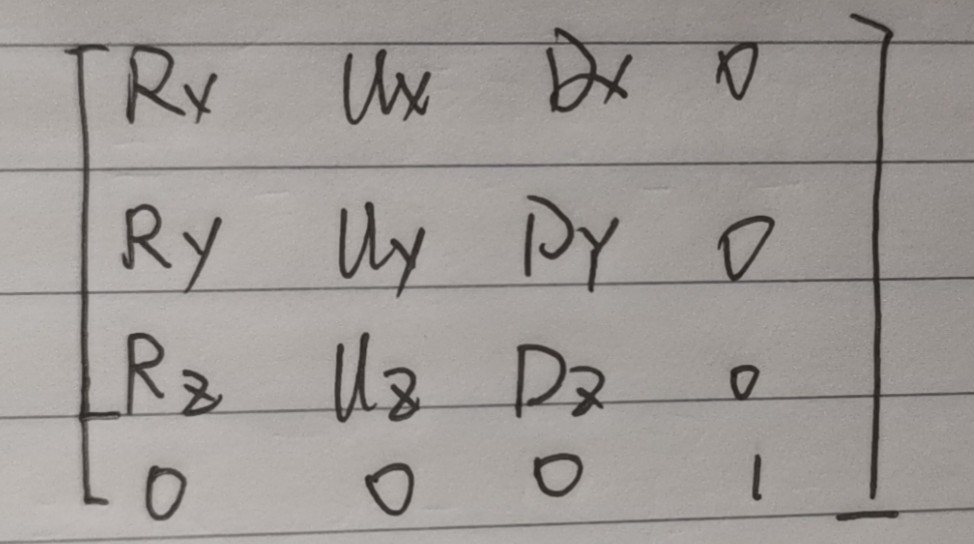 Rx Ux Dx 0
Ry Uy Dy 0
Rz Uz Dz 0
0 0 0 1